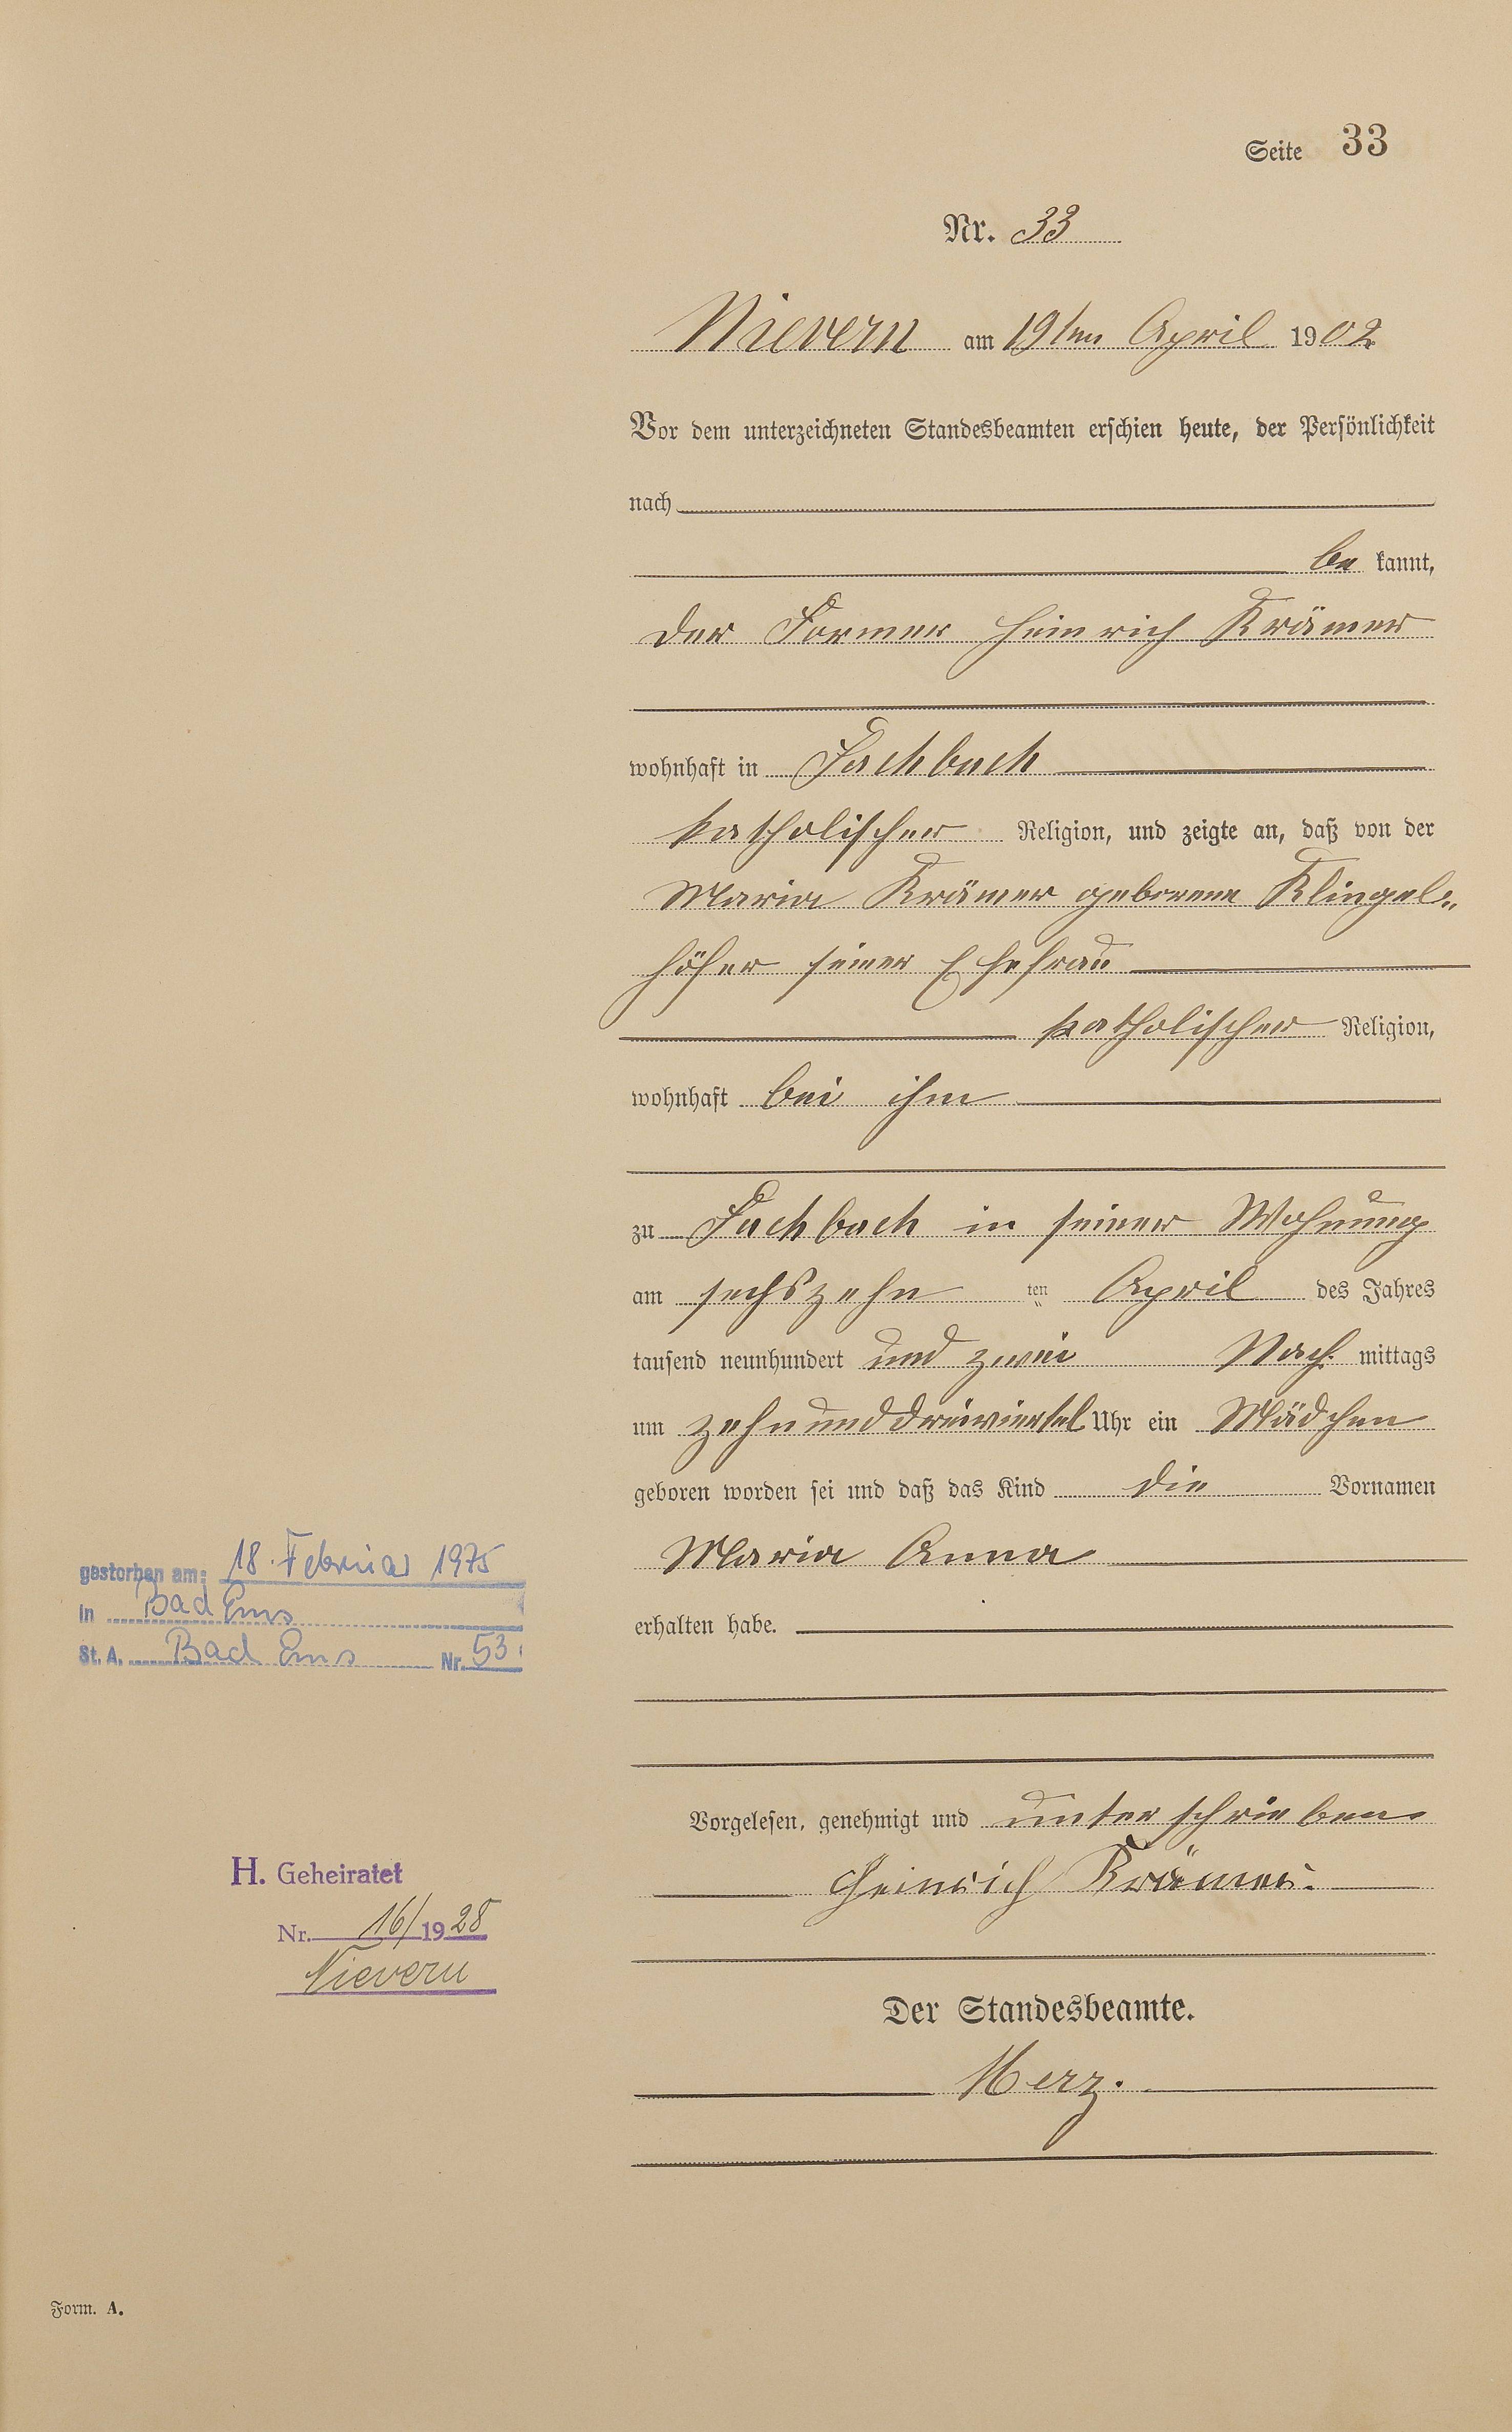 Seite 33
Nr. 33
Nievern am 19ten April 1902
Vor dem unterzeichneten Standesbeamten erschien heute, der Persönlichkeit
nach
be kannt,
der Former Heinrich Krämer
wohnhaft in Fachbach
katholischer Religion, und zeigte an, daß von der
Maria Krämer geborene Klingel„
höfer seiner Ehefrau
katholischer Religion,
wohnhaft bei ihm
zu Fachbach in seiner Wohnung
am sechszehn ten April des Jahres
tausend neunhundert und zwei Nach. mittags
um zehnunddreiviertel Uhr ein Mädchen
geboren worden sei und daß das Kind die Vornamen
Maria Anna
erhalten habe.
gestorben am: 18. Februar 1975
in Bad Ems
St. A. Bad Ems Nr. 53
Vorgelesen, genehmigt und unterschrieben
Heinrich Krämer.
H. Geheiratet
Nr. 16/1928
Nievern
Der Standesbeamte.
Merz.
Form. A.